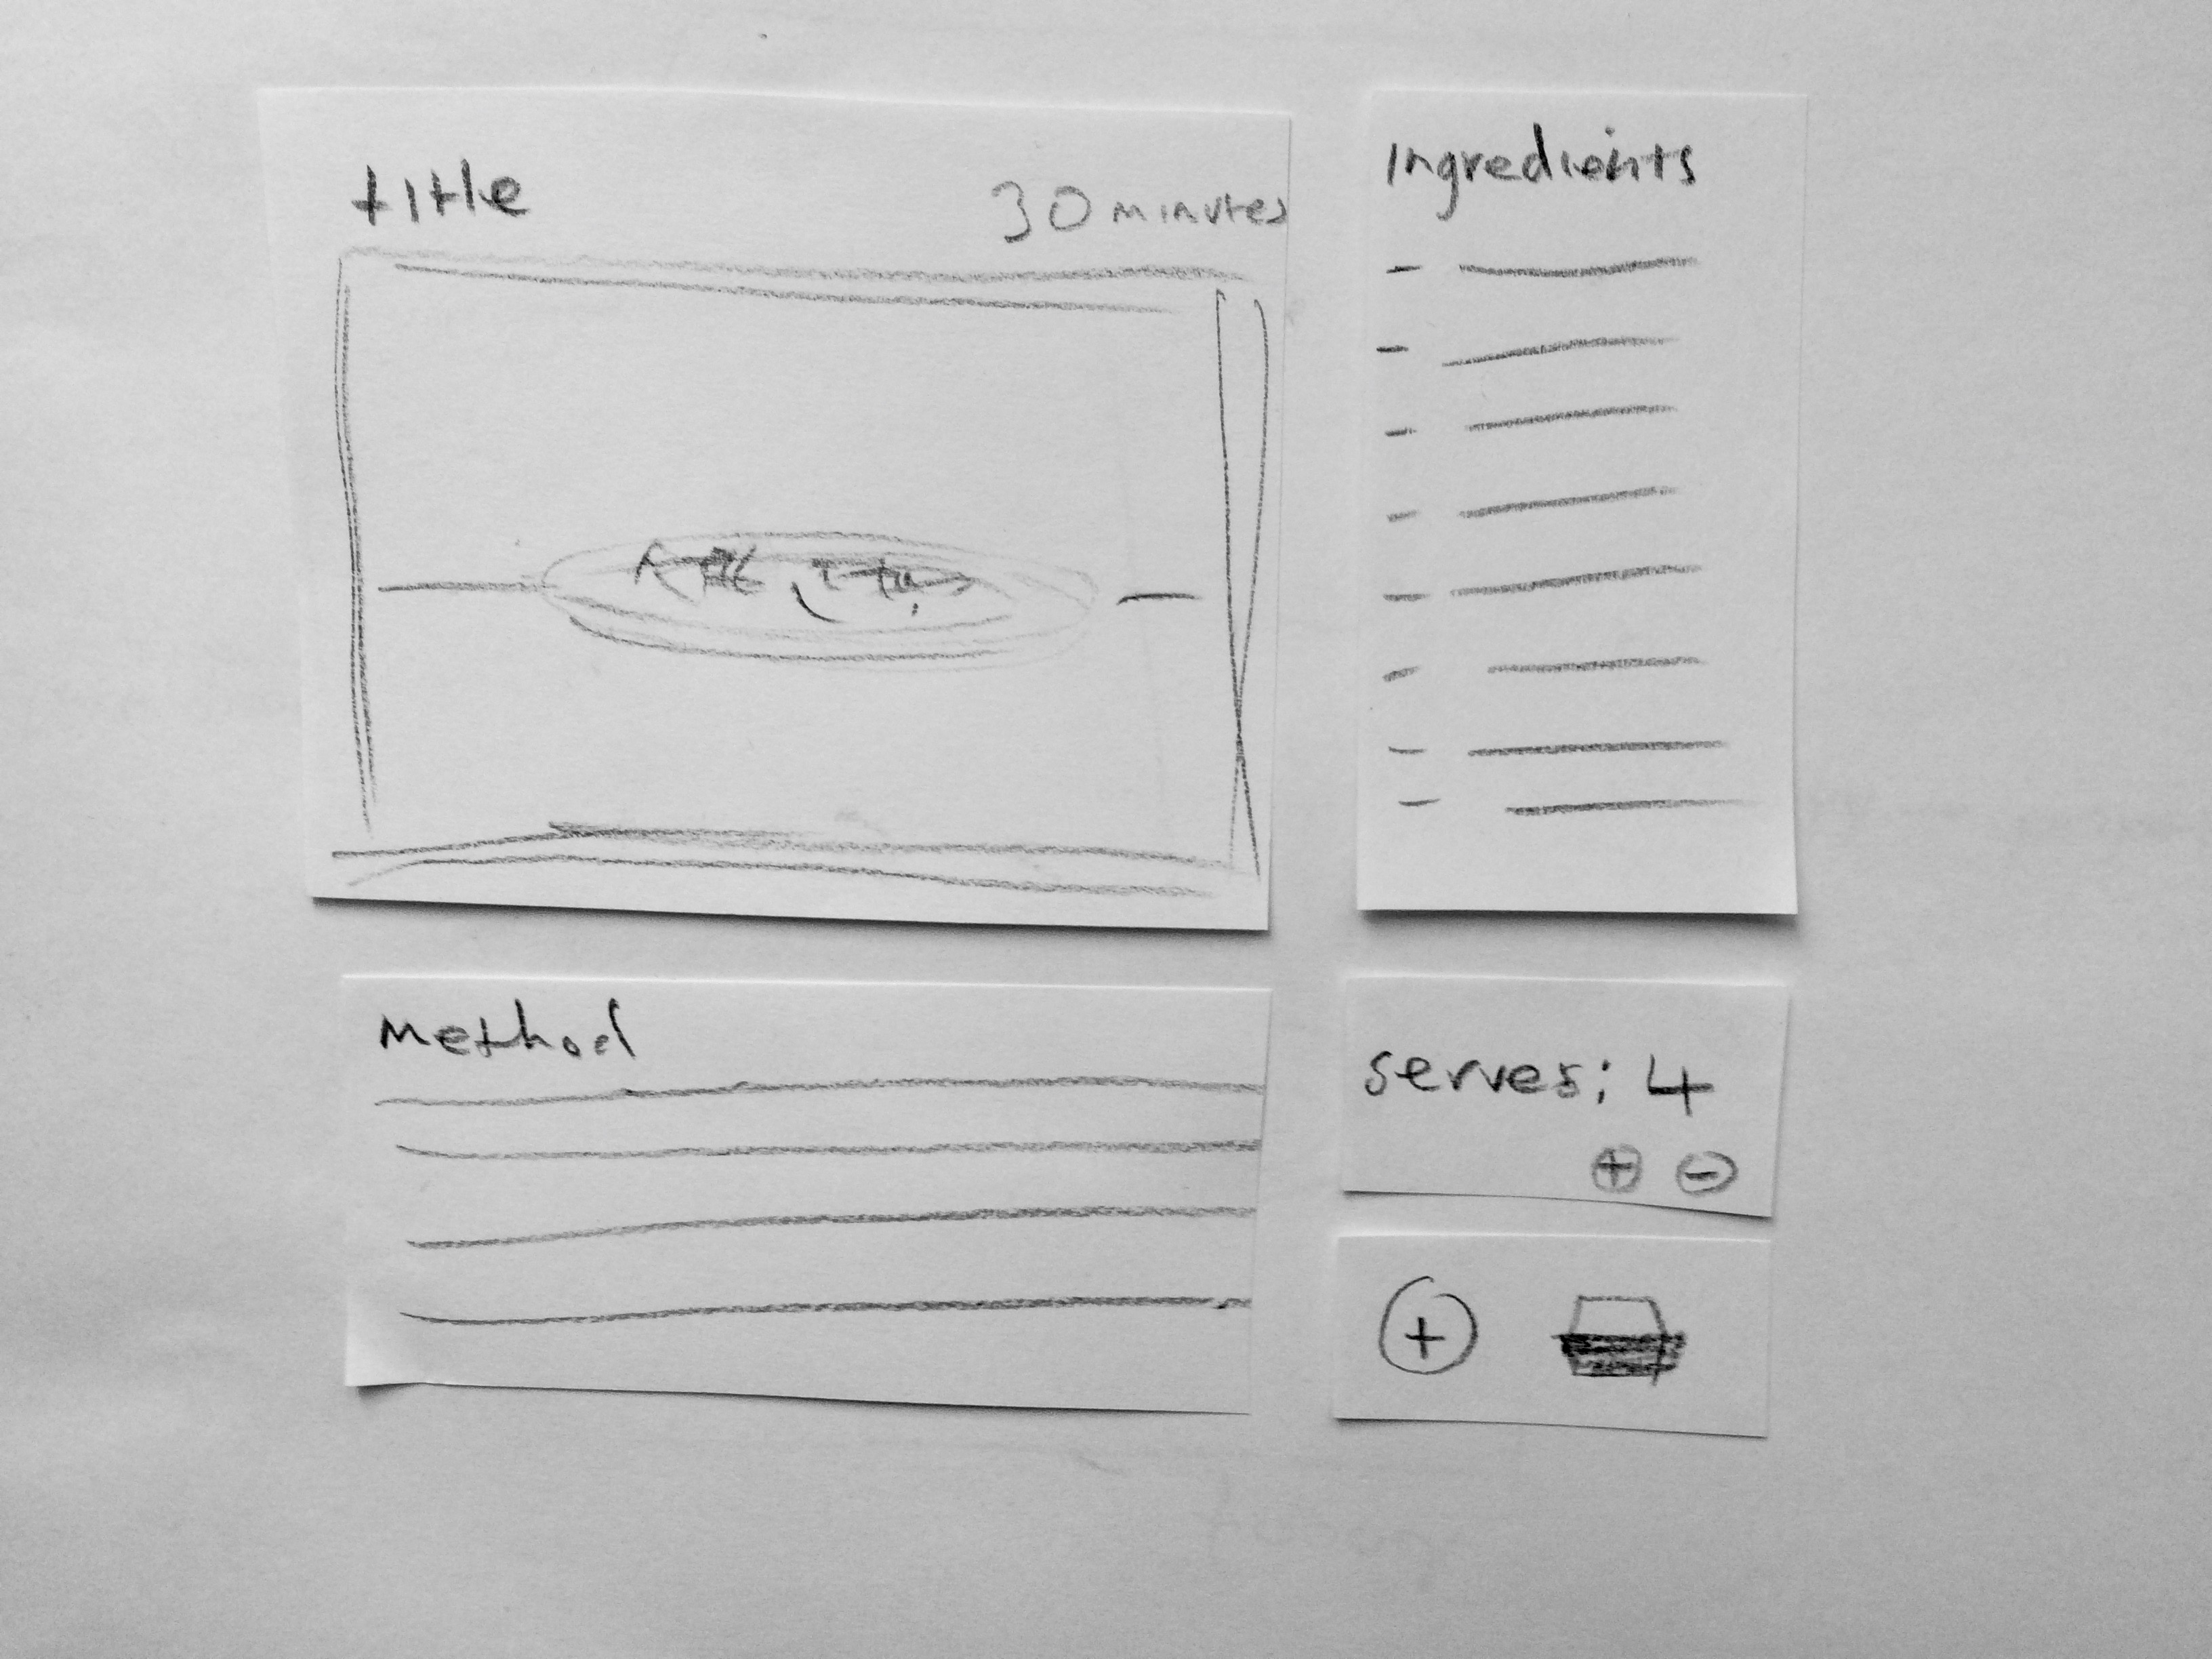 title
30 minutes
Ingredients
Method
serves: 4
+ -
+